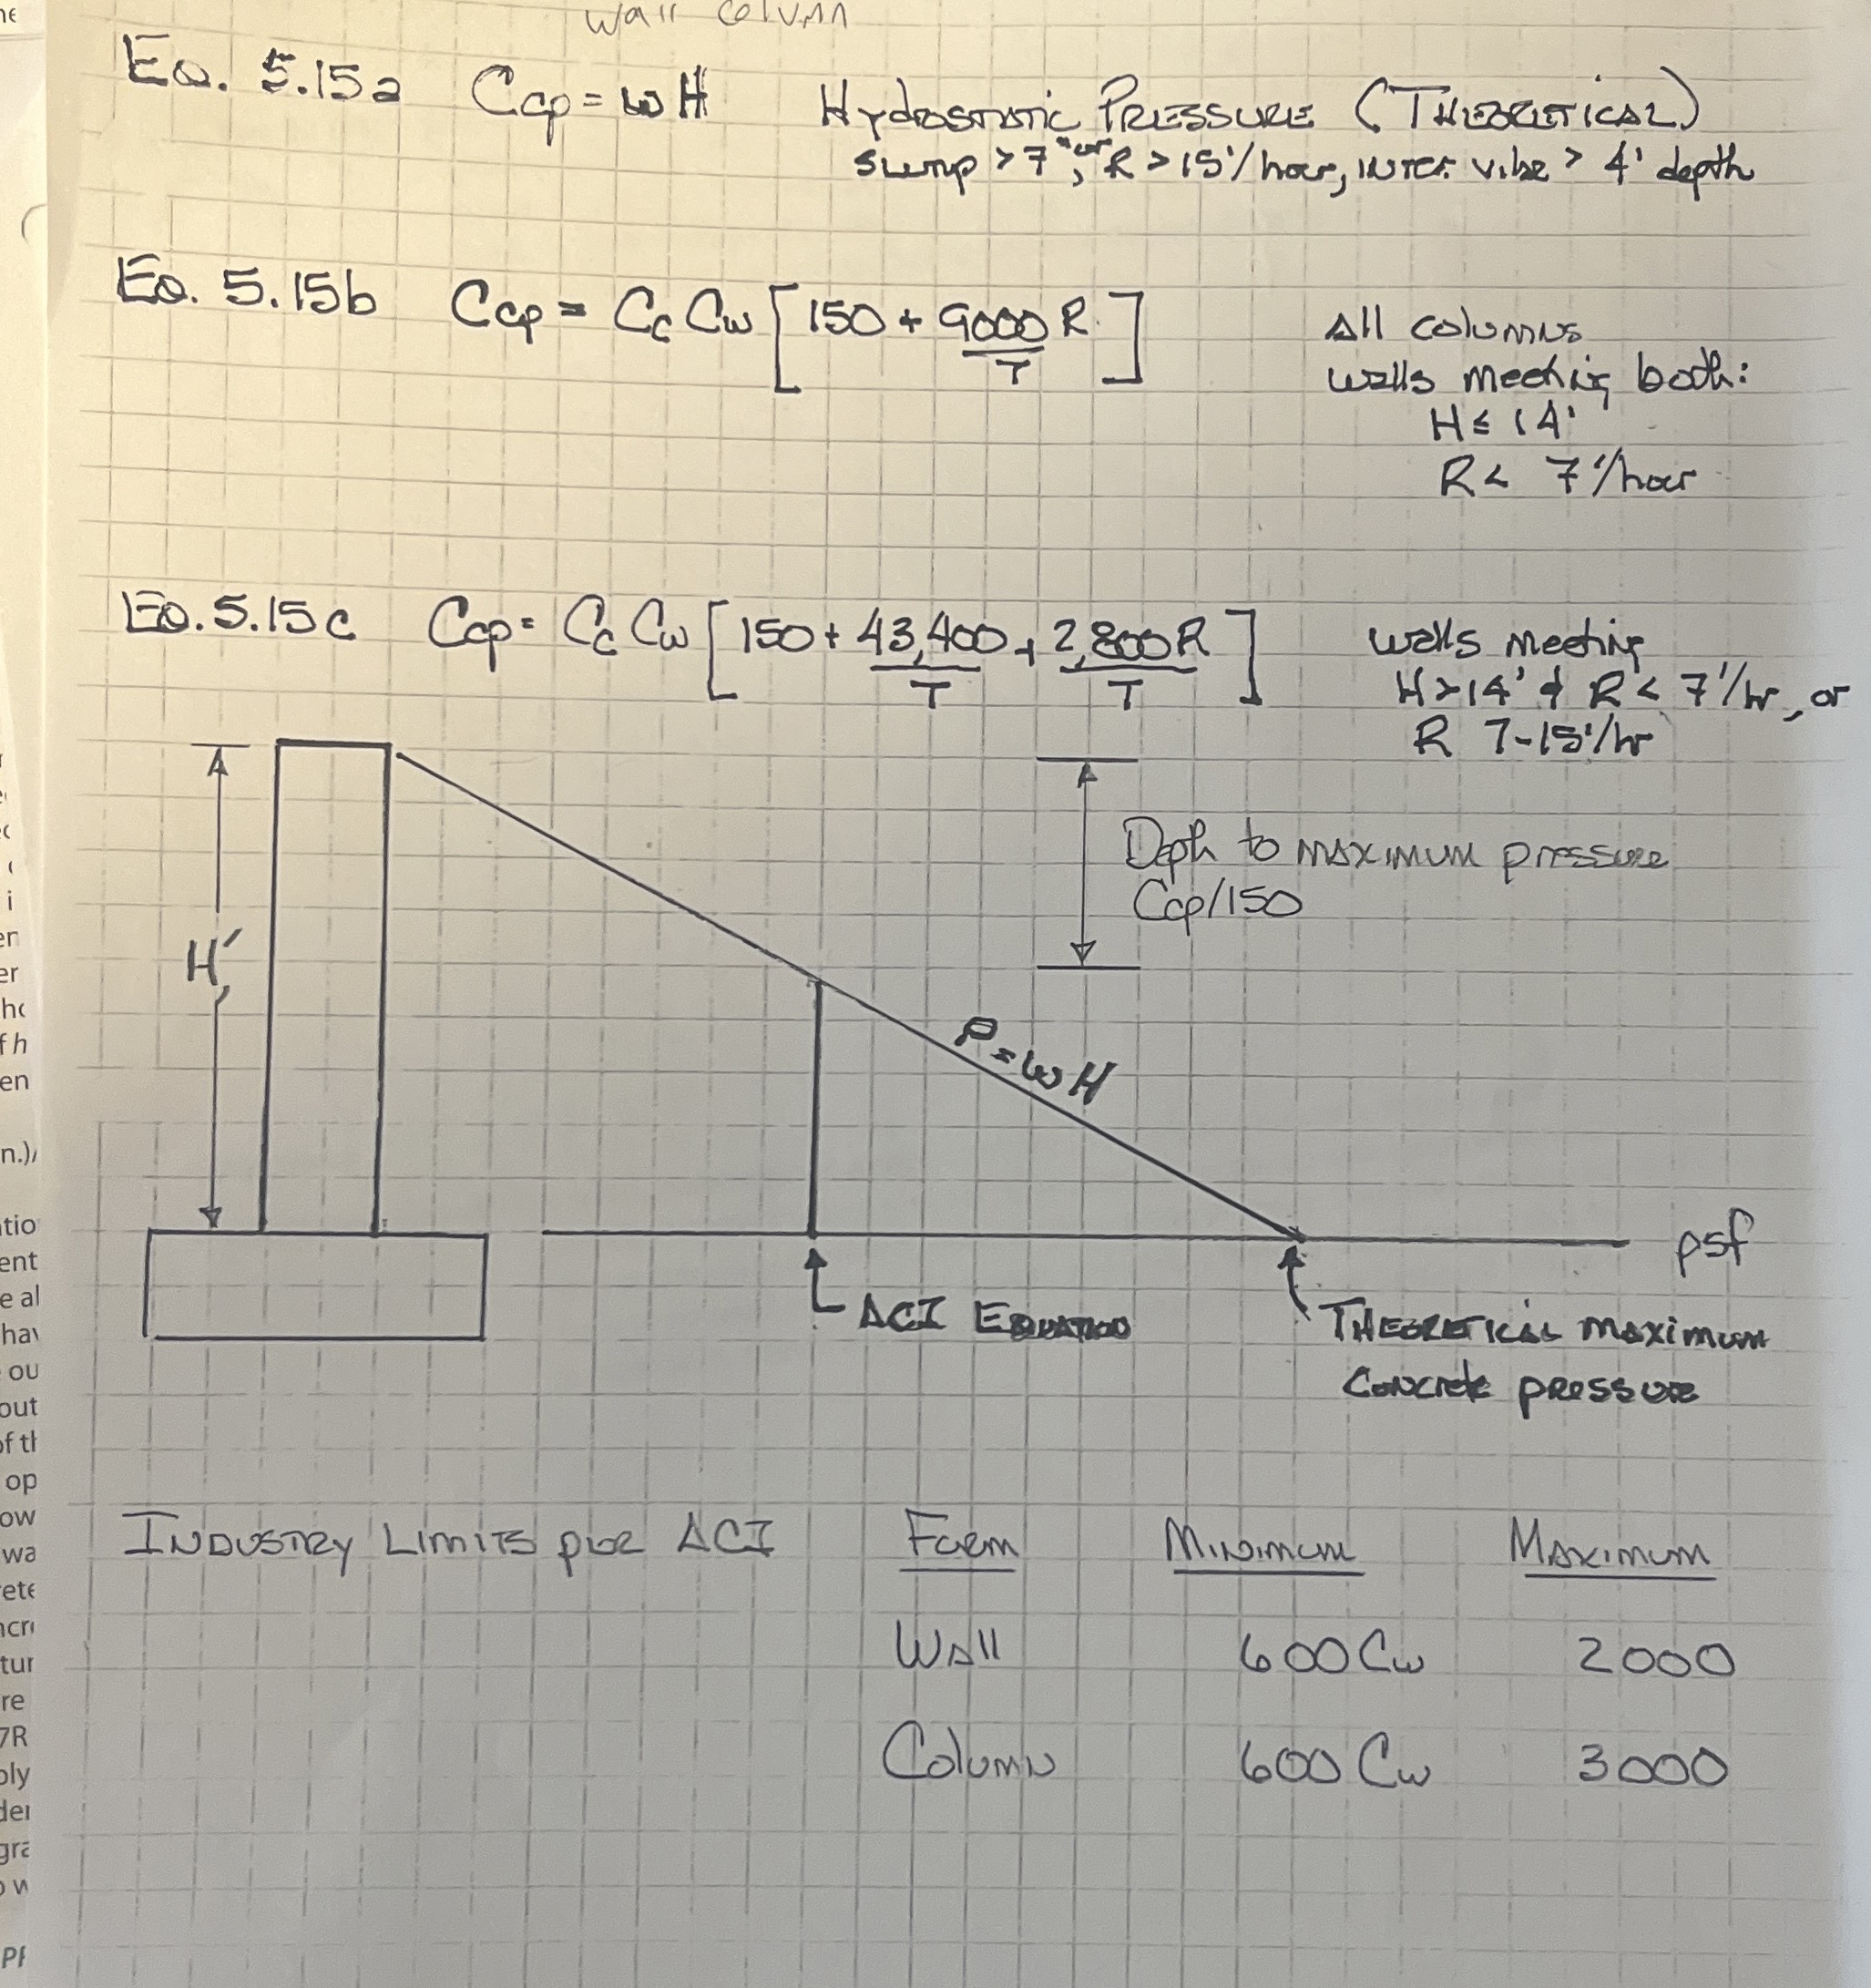 Wall Column
EQ. 5.15a Ccp = ωH HydROSTATIC PRESSURE (THEORETICAL)
Slump > 7" or, R > 15'/hour, INTER. Vibe > 4' depth
EQ. 5.15b Ccp = Cc Cw [150 + 9000 R / T] All columns
walls meeting both:
H ≤ 14'
R < 7'/hour
EQ. 5.15c Ccp = Cc Cw [150 + 43,400 / T + 2,800 R / T] walls meeting
H > 14' & R < 7'/hr, or
R 7-15'/hr
Depth to maximum pressure
Ccp/150
H'
P = ωH
psf
ACI EQUATION
THEORETICAL MAXIMUM
CONCRETE PRESSURE
INDUSTRY LIMITS per ACI Form MINIMUM MAXIMUM
Wall 600 Cw 2000
Column 600 Cw 3000
i
en
er
f h
en
n.)/
tio
ent
e al
hav
ou
out
of th
op
ow
wa
ete
ncr
tur
re
7R
oly
der
gra
o w
PF